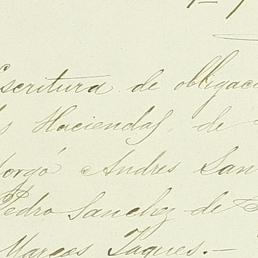 Escritura de obligaci
s Haciendas, de
orgó Andres San
Pedro Sanchez de
Marcos Jaques.—